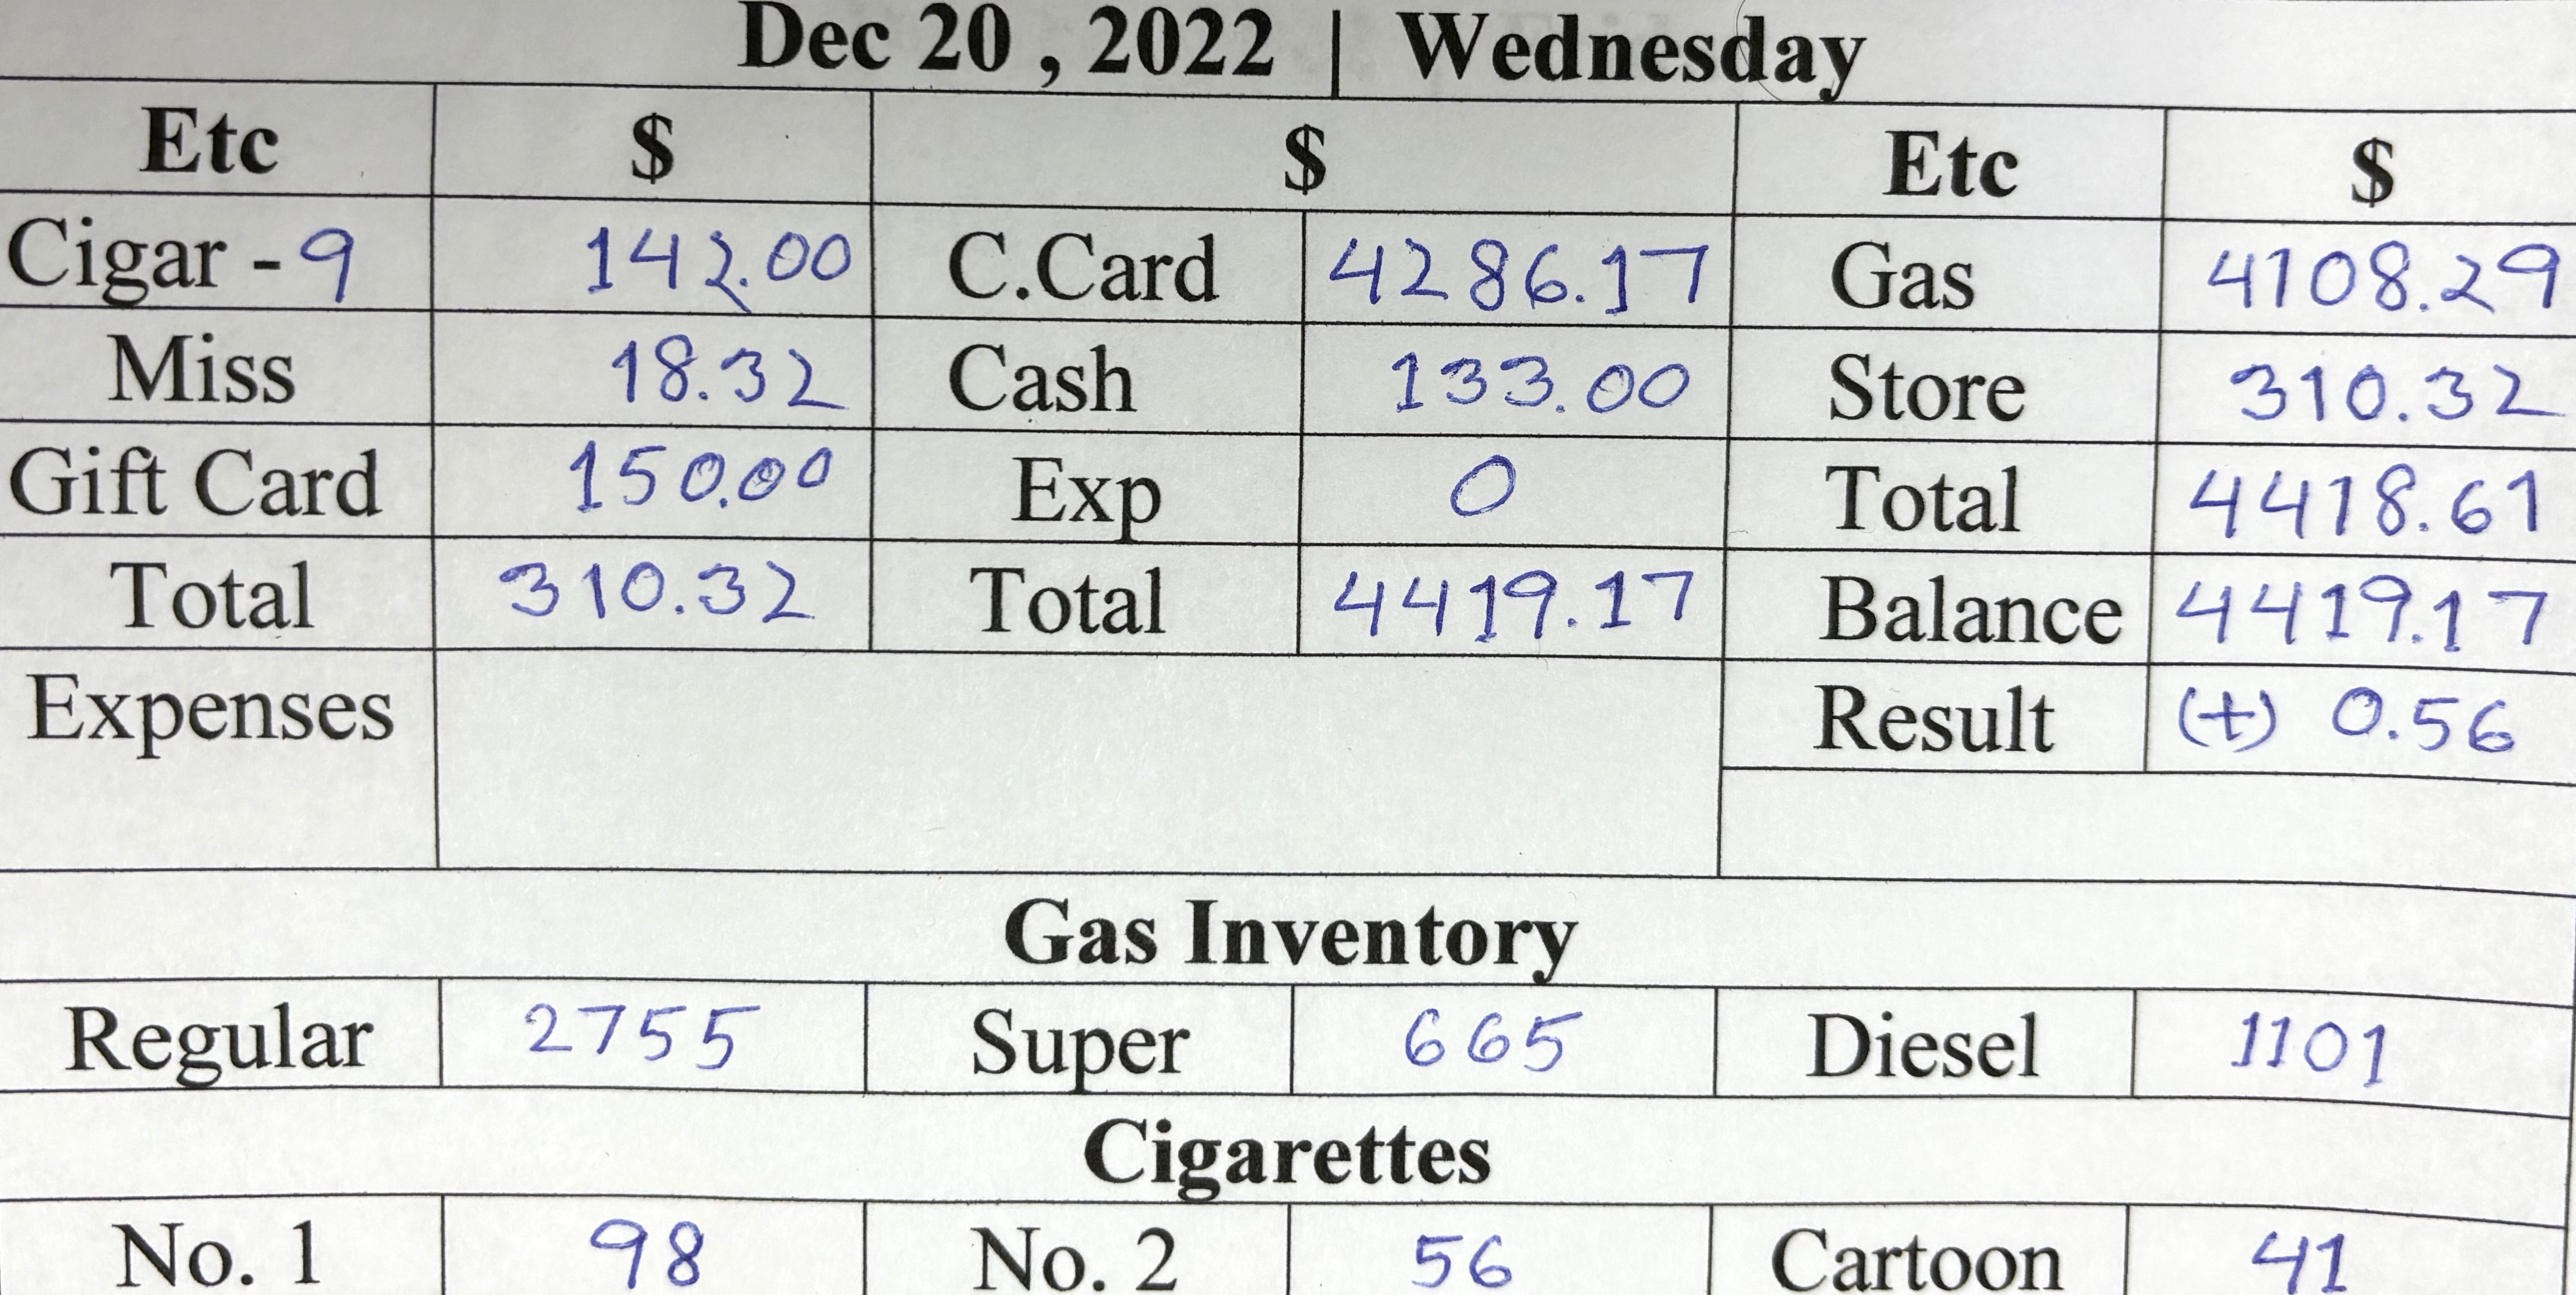 Dec 20 , 2022 | Wednesday
Etc $ $ Etc $
Cigar - 9 142.00 C.Card 4286.17 Gas 4108.29
Miss 18.32 Cash 133.00 Store 310.32
Gift Card 150.00 Exp 0 Total 4418.61
Total 310.32 Total 4419.17 Balance 4419.17
Expenses Result (+) 0.56
Gas Inventory
Regular 2755 Super 665 Diesel 1101
Cigarettes
No. 1 98 No. 2 56 Cartoon 41